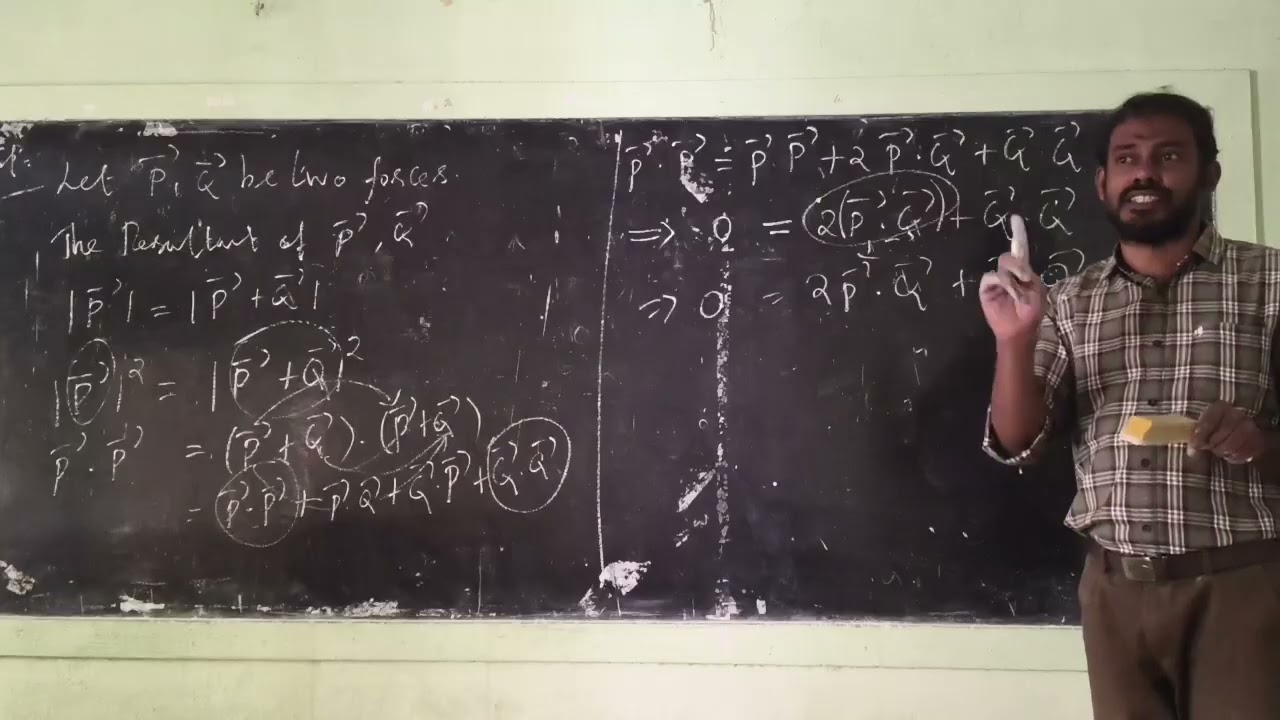 Let P⃗, Q⃗ be two forces.
The Resultant of P⃗, Q⃗
|P⃗| = |P⃗ + Q⃗|
|P⃗|² = |P⃗ + Q⃗|²
P⃗ · P⃗ = (P⃗ + Q⃗) · (P⃗ + Q⃗)
= P⃗ · P⃗ + P⃗ Q⃗ + Q⃗ · P⃗ + Q⃗ · Q⃗
P⃗ · P⃗ = P⃗ · P⃗ + 2 P⃗ · Q⃗ + Q⃗ Q⃗
=> 0 = 2(P⃗ · Q⃗) + Q⃗ · Q⃗
=> 0 = 2P⃗ · Q⃗ + Q⃗